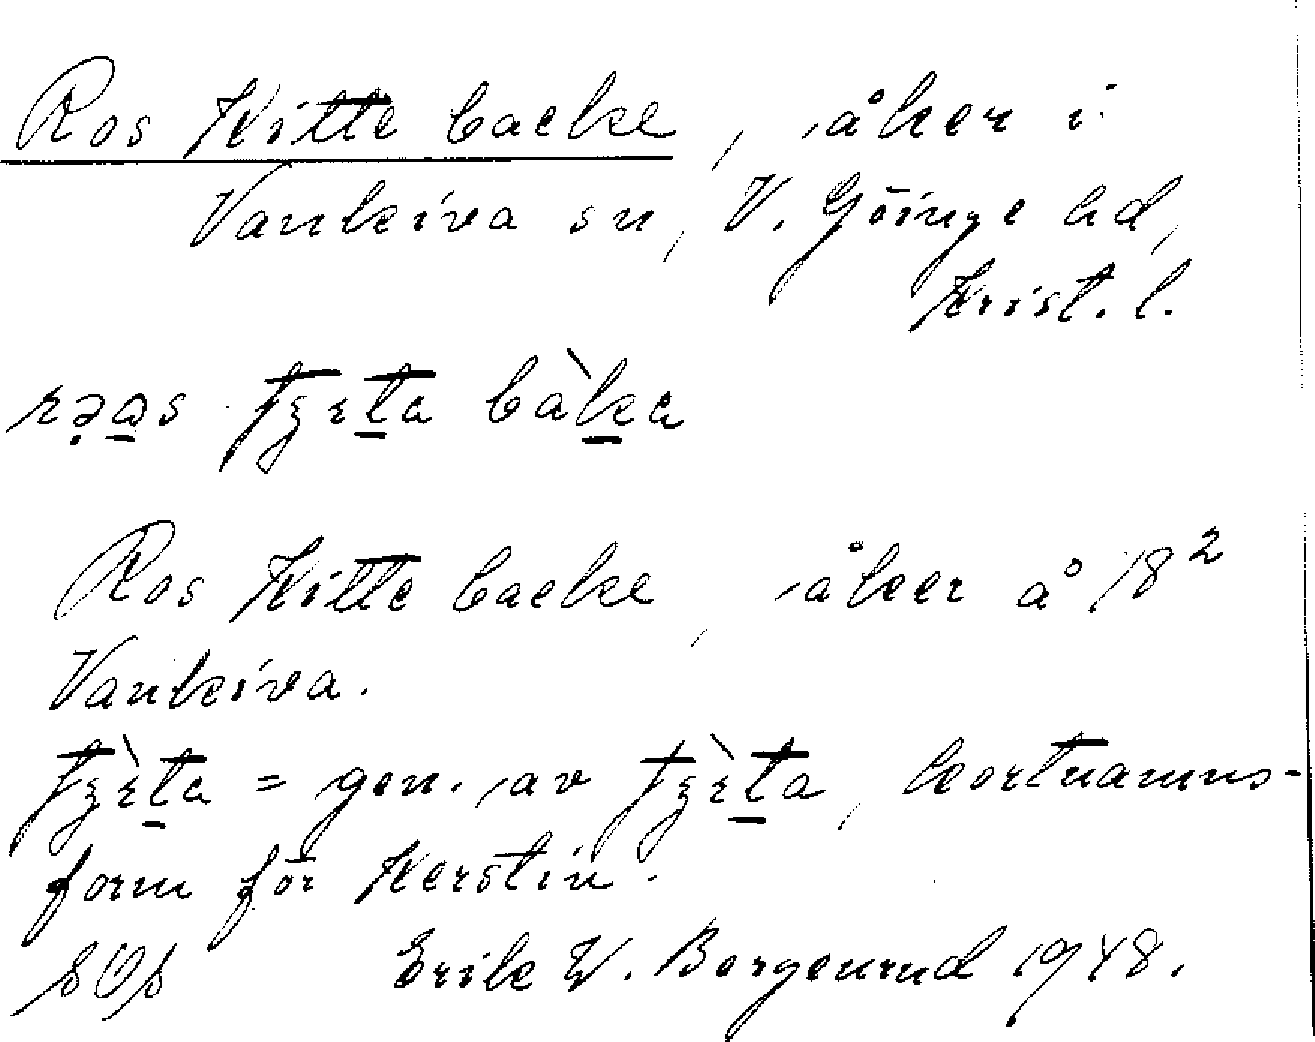 Ros Kitte backe, åker i
Vankiva sn, V. Göinge hd,
Krist. l.
bàka
Ros Kitte backe, åker å 18²
Vankiva.
= gen. av kortnamns-
form för Kerstin.
Erik W. Borgenrud 1948.